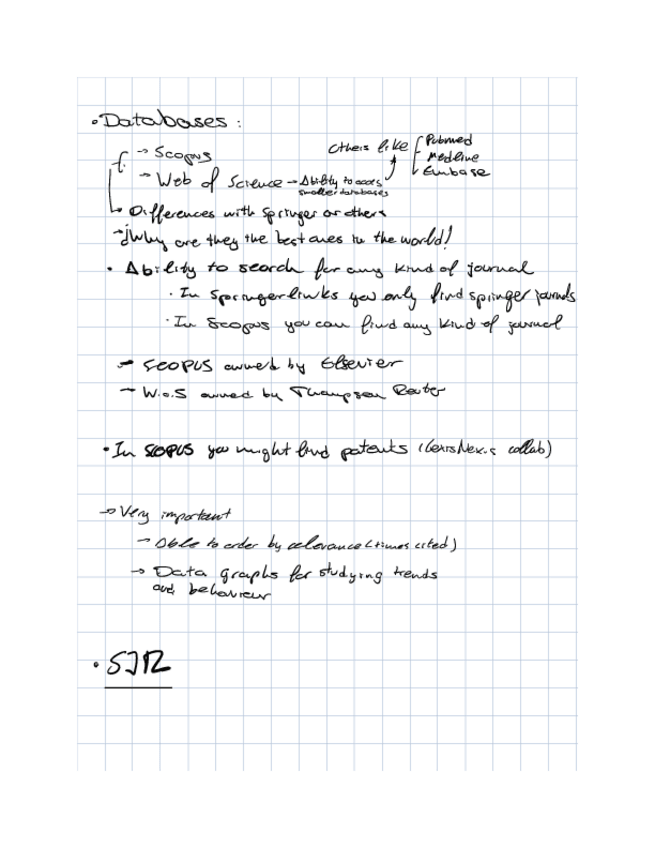 • Databases :
→ Scopus
Others like { Pubmed
Medline
Embase
→ Web of Science → Ability to acces
smaller databases
↳ Differences with Springer or others
→ ¡Why are they the best ones in the world!
• Ability to search for any kind of journal
· In Springerlinks you only find springer journals
· In Scopus you can find any kind of journal
→ SCOPUS owned by Elsevier
→ W.o.S owned by Thompson Reuter
• In SCOPUS you might find patents (LexisNexis collab)
→ Very important
→ Able to order by relevance (times cited)
→ Data graphs for studying trends
and behaviour
• SJR